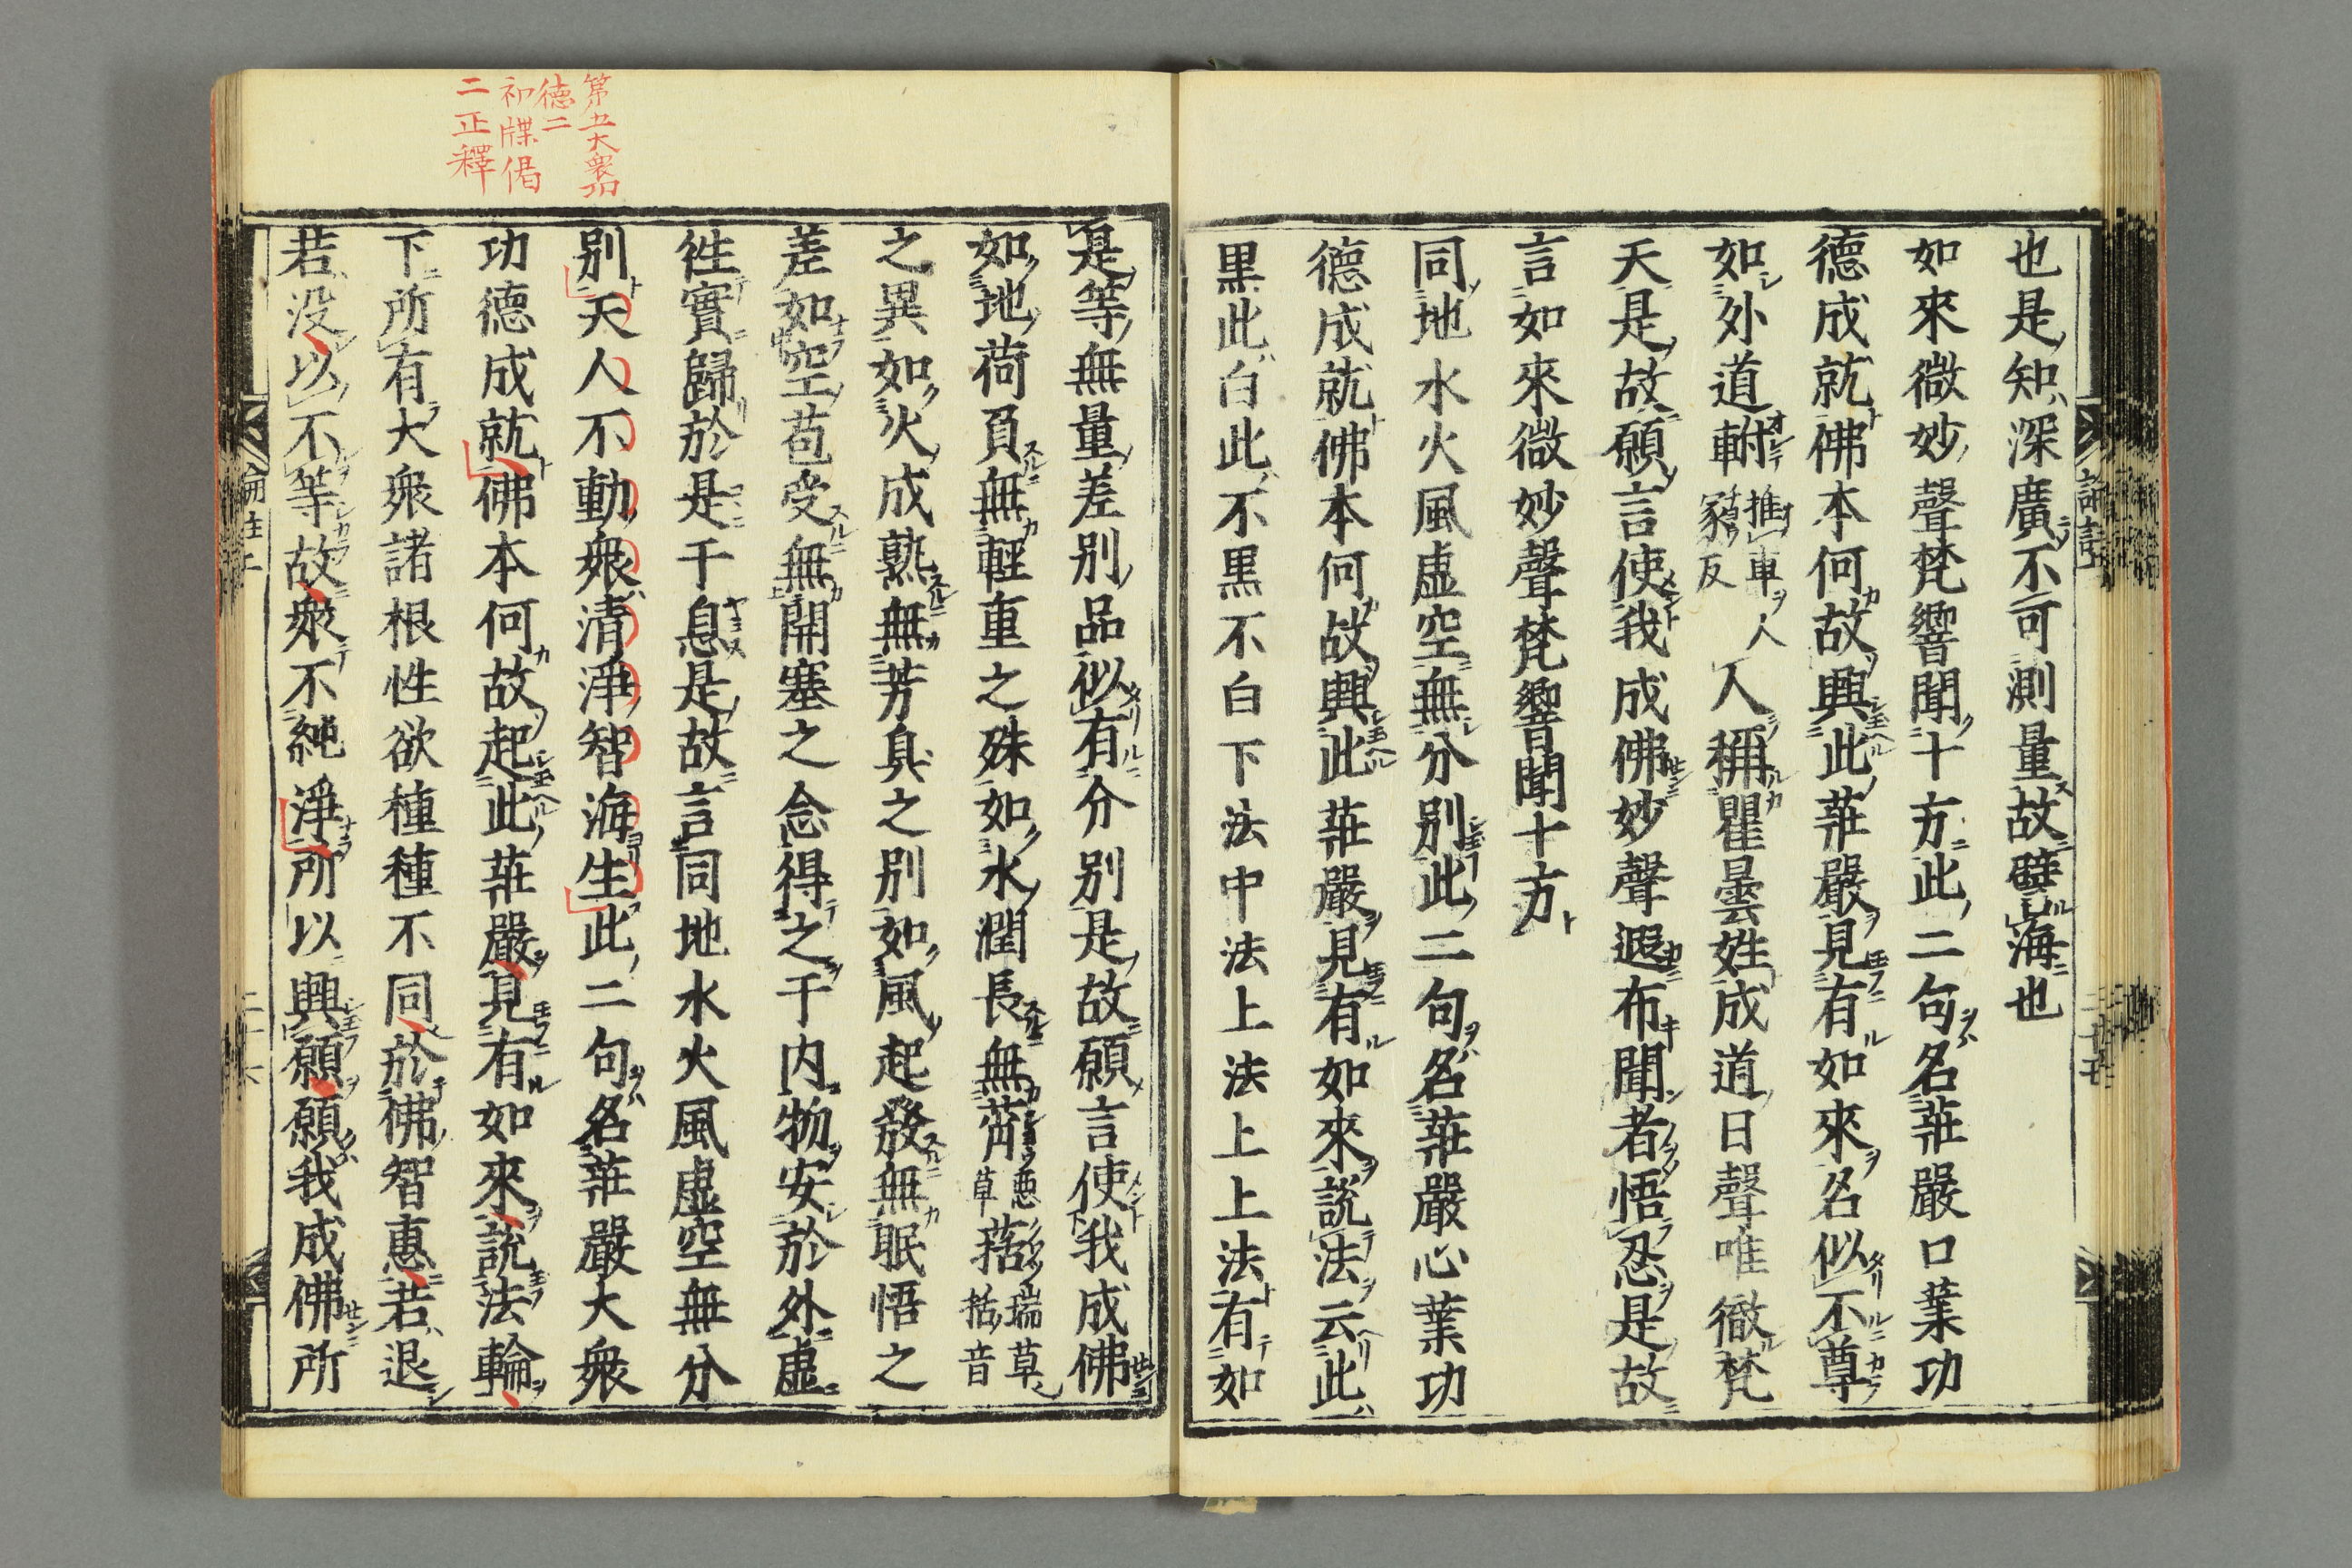 也是知深廣不可測量故譬海也
如來微妙聲梵響聞十方此二句名莊嚴口業功
德成就佛本何故興此莊嚴見有如來名似不尊
如外道軵推車人豩反人稱瞿曇姓成道日聲唯徹梵
天是故願言使我成佛妙聲遐布聞者悟忍是故
言如來微妙聲梵響聞十方
同地水火風虛空無分別此二句名莊嚴心業功
德成就佛本何故興此莊嚴見有如來說法云此
黒此白此不黒不白下法中法上法上上法有如
是等無量差別品似有分別是故願言使我成佛
如地荷負無輕重之殊如水潤長無䓘惡草葀瑞草括音
之異如火成熟無芳臭之別如風起發無眠悟之
差如空苞受無開塞之念得之于内物安於外虛
徃實歸於是于息是故言同地水火風虛空無分
別天人不動衆清淨智海生此二句名莊嚴大衆
功德成就佛本何故起此莊嚴見有如來說法輪
下所有大衆諸根性欲種種不同於佛智惠若退
若没以不等故衆不純淨所以興願願我成佛所
第五大衆功
德二
初牒偈
二正釋